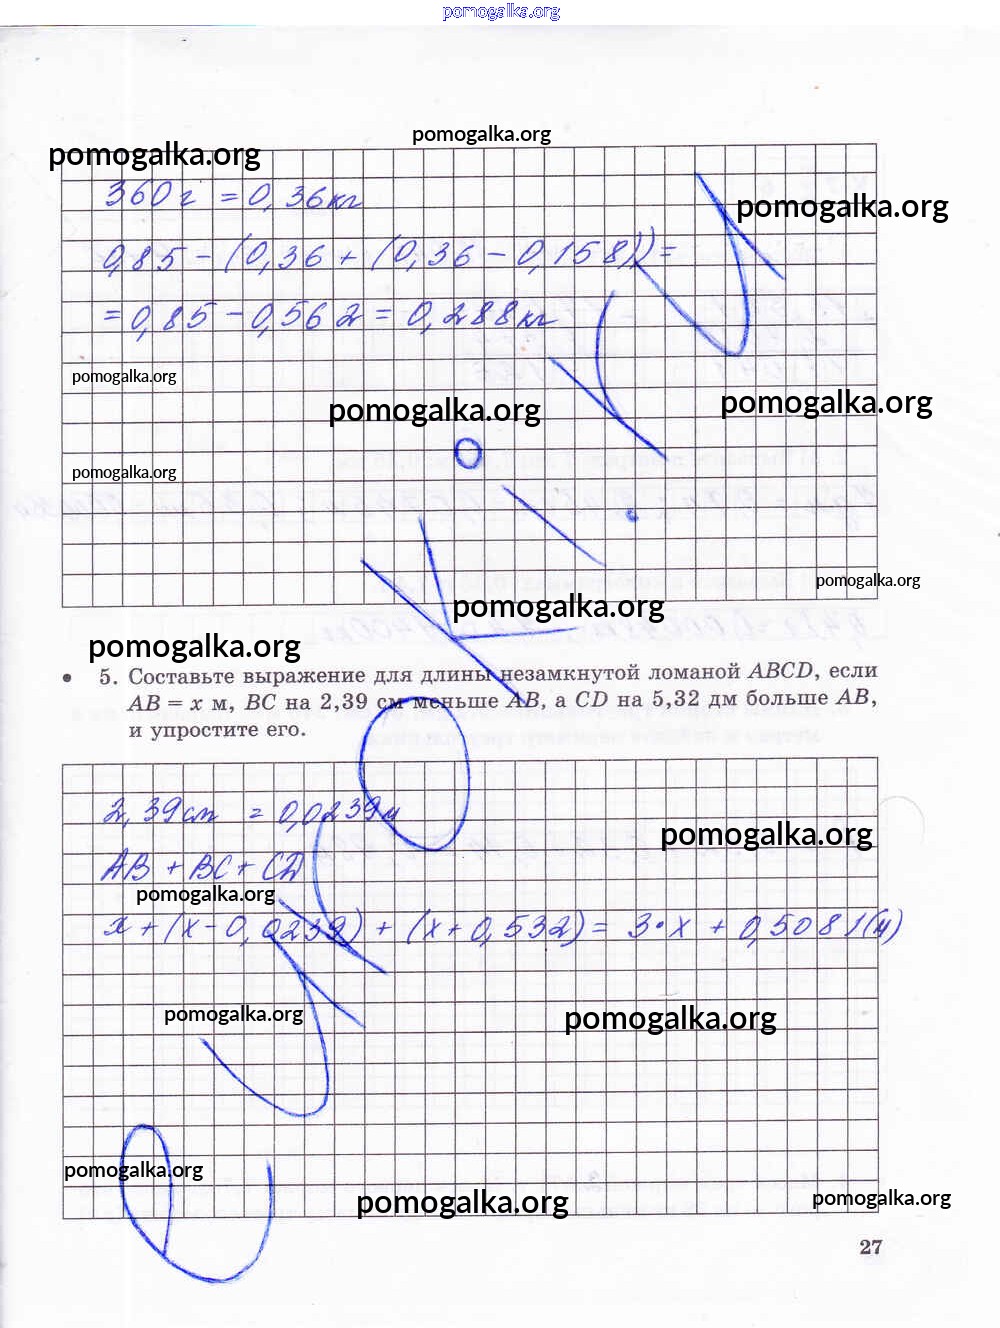 pomogalka.org
pomogalka.org
pomogalka.org
360 г = 0,36 кг
pomogalka.org
0,85 - (0,36 + (0,36 - 0,158)) =
= 0,85 - 0,562 = 0,288 кг
pomogalka.org
pomogalka.org
pomogalka.org
pomogalka.org
pomogalka.org
pomogalka.org
pomogalka.org
• 5. Составьте выражение для длины незамкнутой ломаной ABCD, если
AB = x м, BC на 2,39 см меньше AB, а CD на 5,32 дм больше AB,
и упростите его.
2,39 см = 0,0239 м
pomogalka.org
AB + BC + CD
pomogalka.org
x + (x - 0,0239) + (x + 0,532) = 3·x + 0,5081 (м)
pomogalka.org
pomogalka.org
pomogalka.org
pomogalka.org
pomogalka.org
27